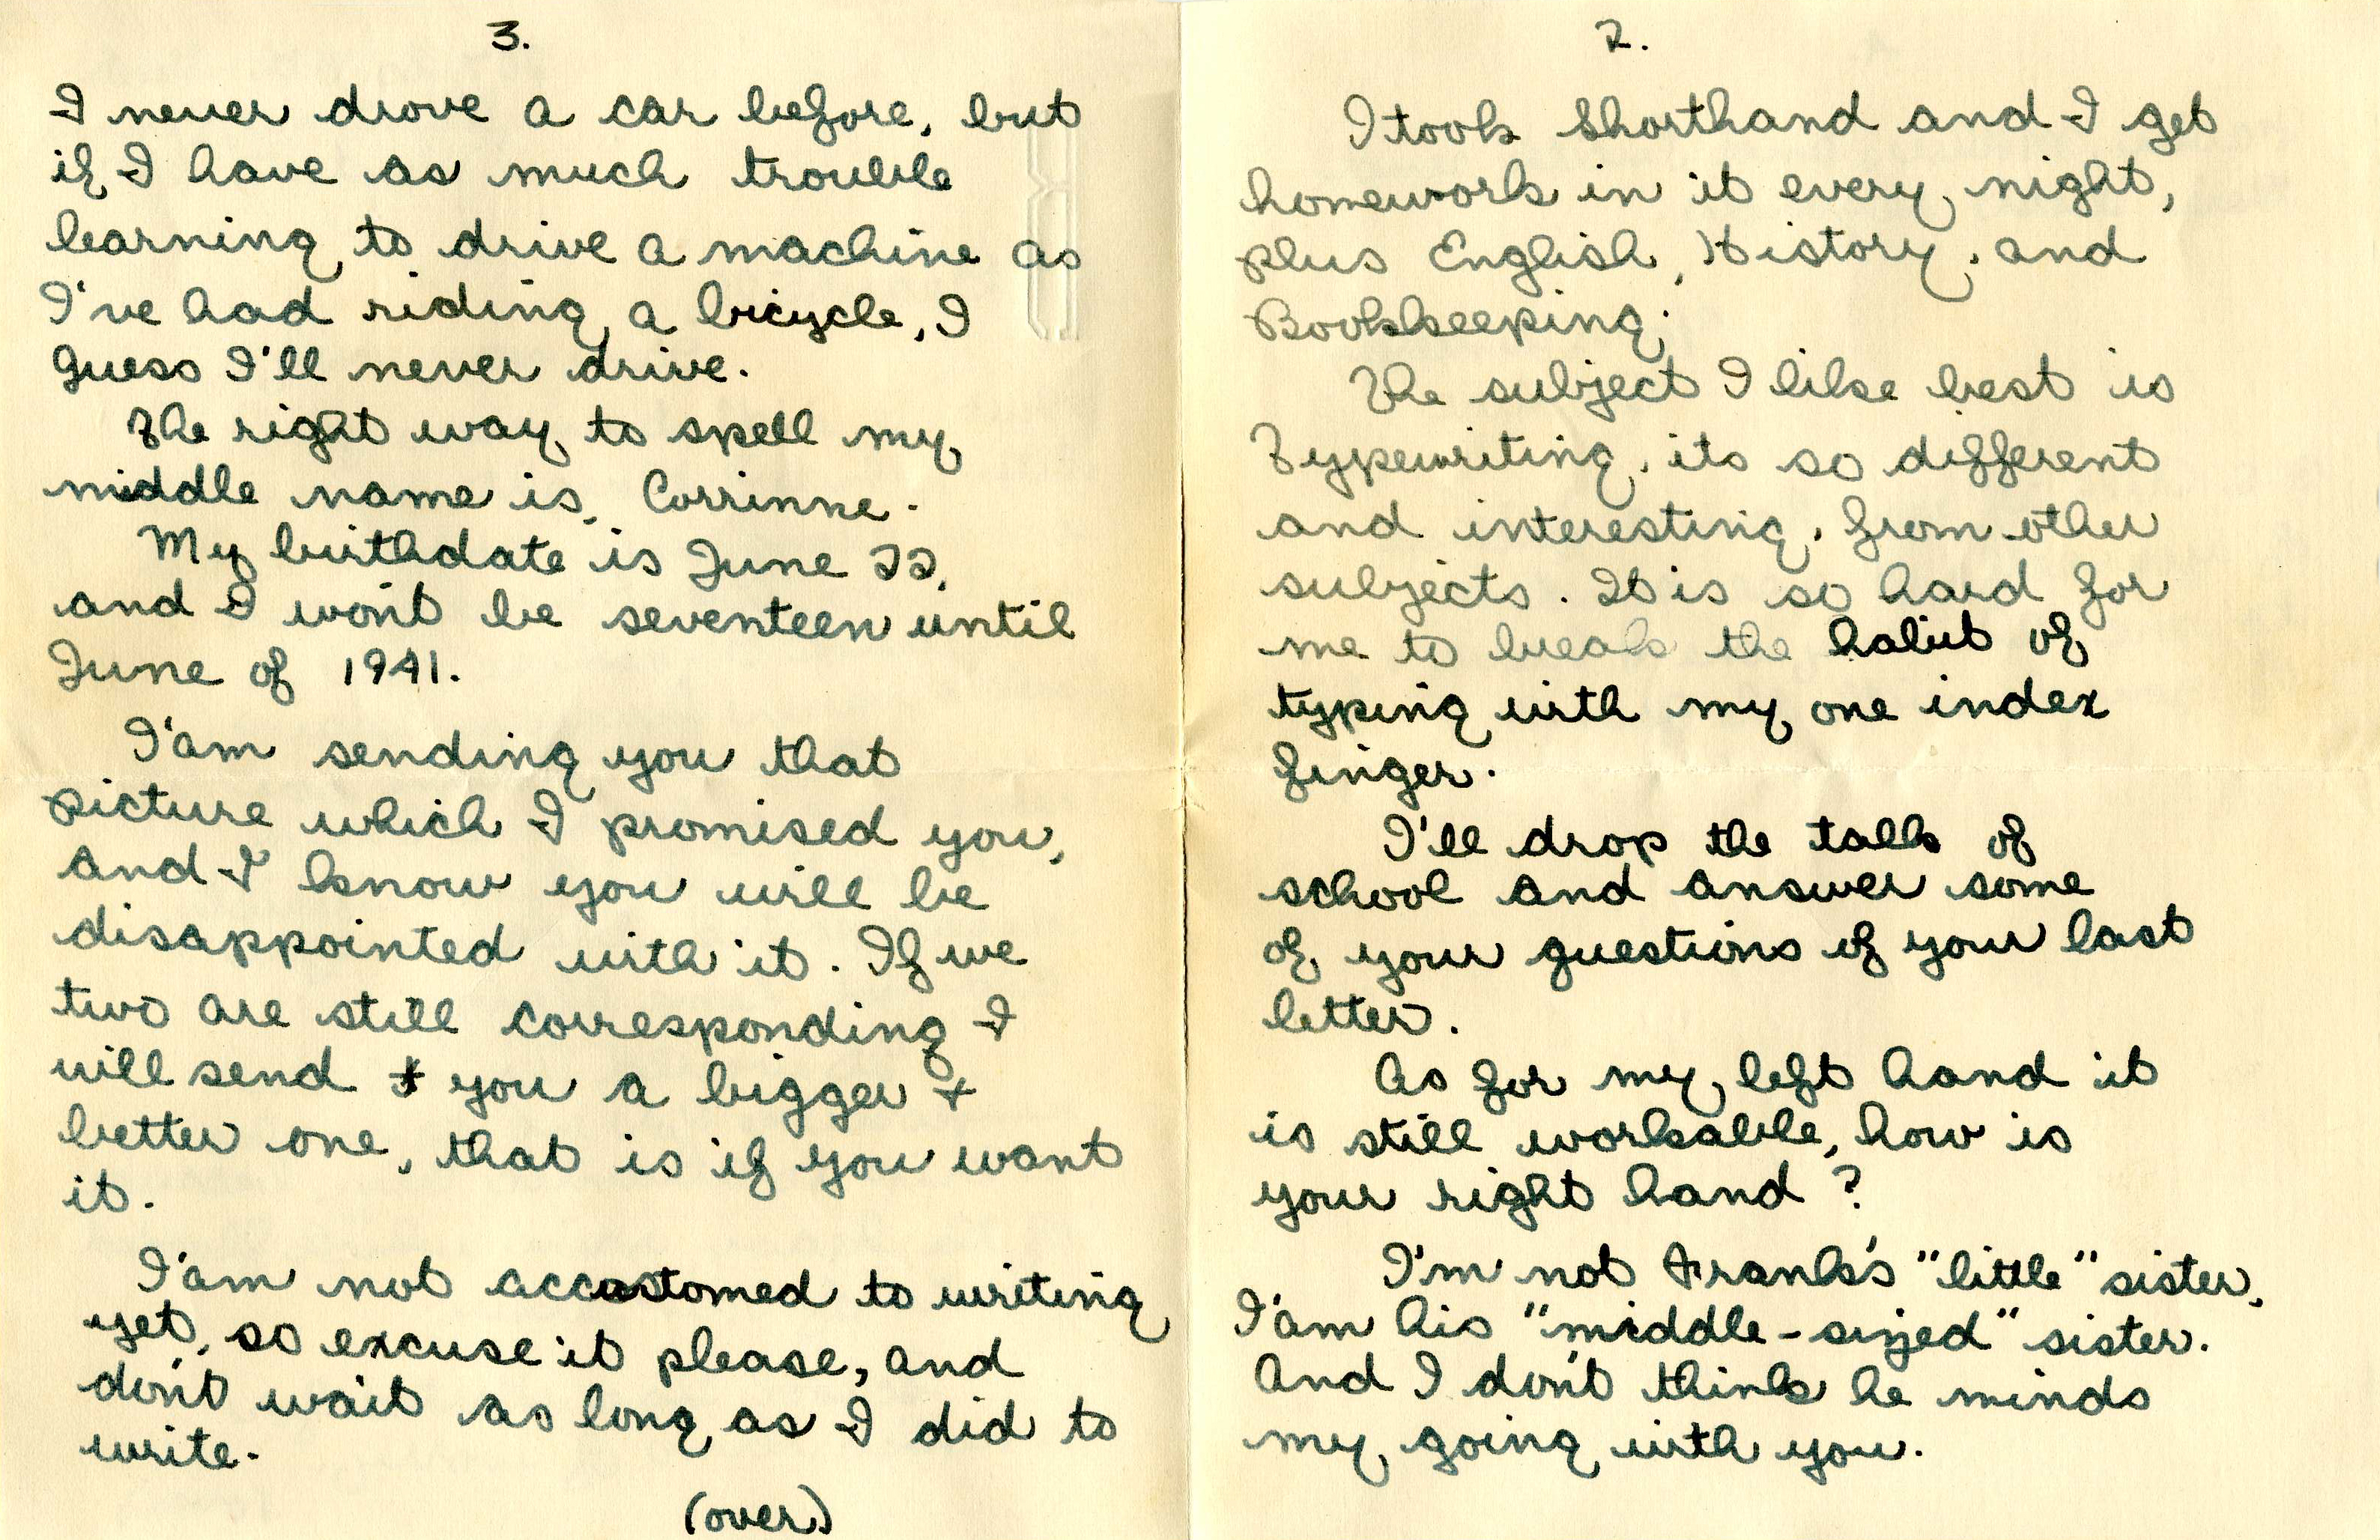 2.
I took Shorthand and I get
homework in it every night,
plus English, History, and
Bookkeeping.
The subject I like best is
Typewriting, its so different
and interesting, from other
subjects. It is so hard for
me to break the habit of
typing with my one index
finger.
I'll drop the talk of
school and answer some
of your questions of your last
letter.
As for my left hand it
is still workable, how is
your right hand ?
I'm not Frank's "little" sister,
I'am his "middle-sized" sister.
And I don't think he minds
my going with you.
3.
I never drove a car before, but
if I have as much trouble
learning to drive a machine as
I've had riding a bicycle, I
guess I'll never drive.
The right way to spell my
middle name is, Corrinne.
My birthdate is June 22,
and I won't be seventeen until
June of 1941.
I'am sending you that
picture which I promised you,
and I know you will be
disappointed with it. If we
two are still corresponding I
will send you a bigger +
better one, that is if you want
it.
I'am not accustomed to writing
yet, so excuse it please, and
don't wait as long as I did to
write.
(over)